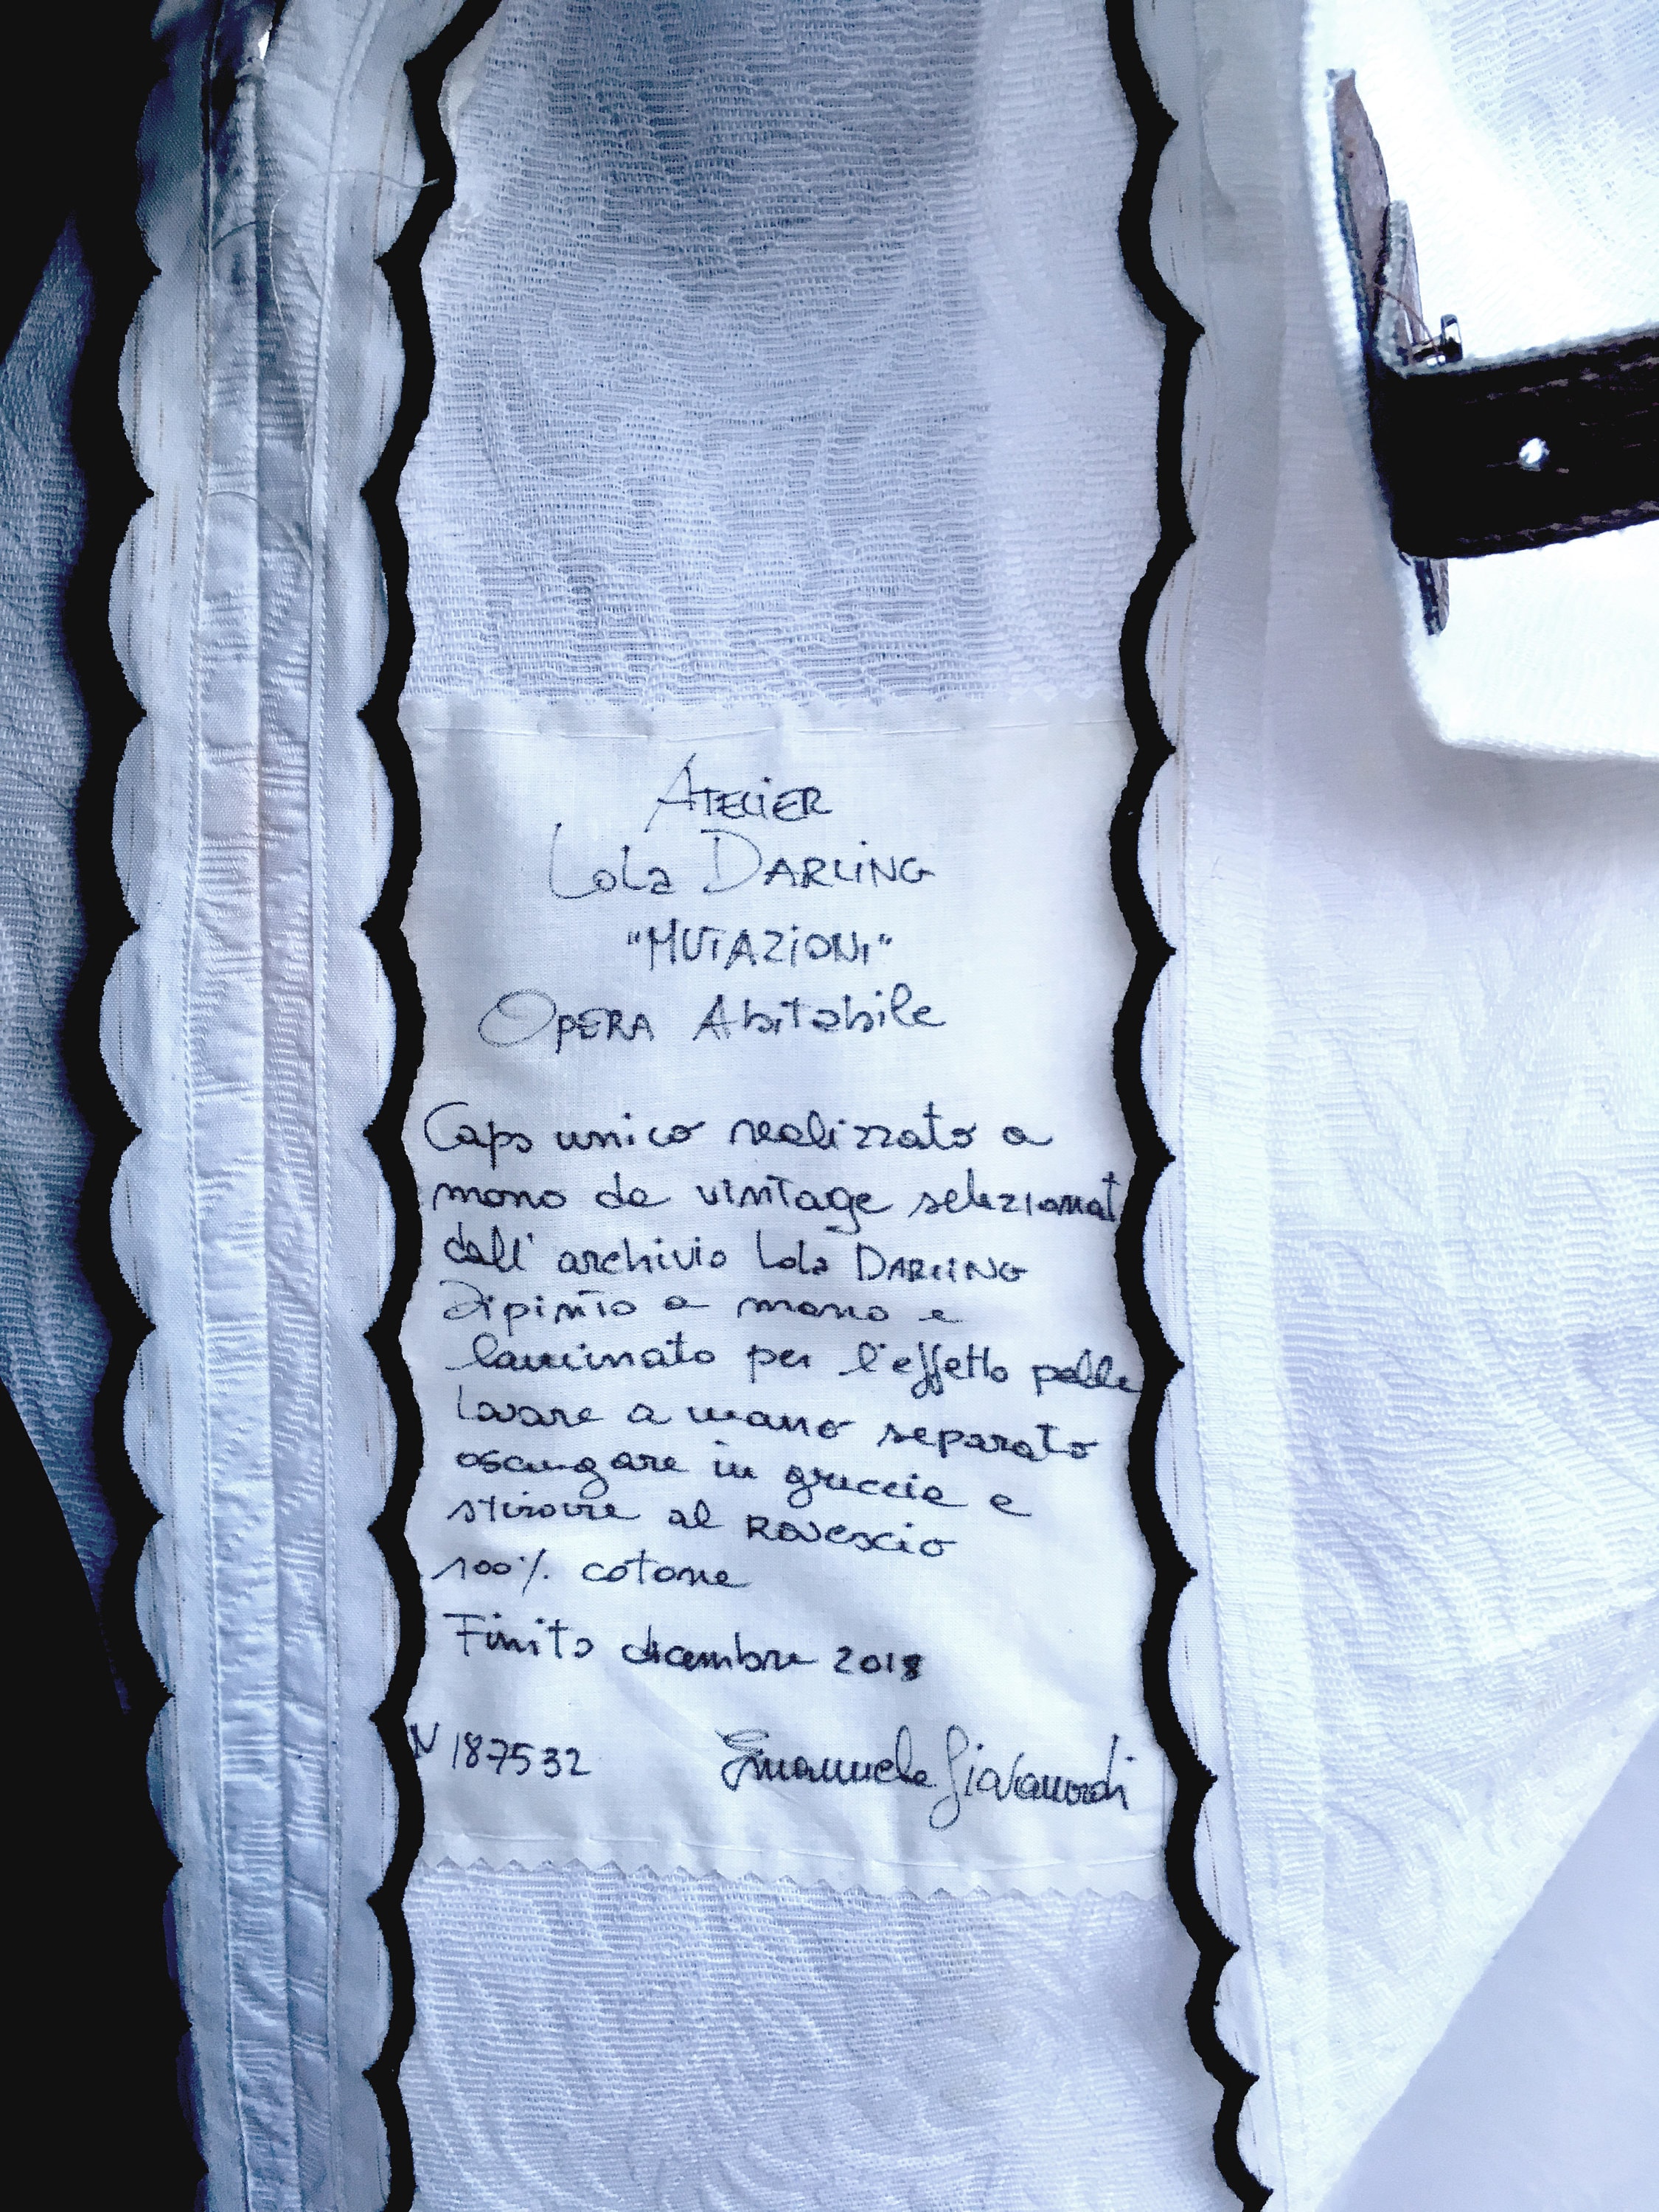 ATELIER
Lola DARLING
"MUTAZIONI"
OPERA Abitabile
Capo unico realizzato a
mano da vintage selezionat
dall'archivio Lola DARLING
Dipinto a mano e
laminato per l'effetto pelle
Lavare a mano separato
asciugare in gruccia e
stirare al Rovescio
100% cotone
Finito dicembre 2018
N 187532 Emanuela